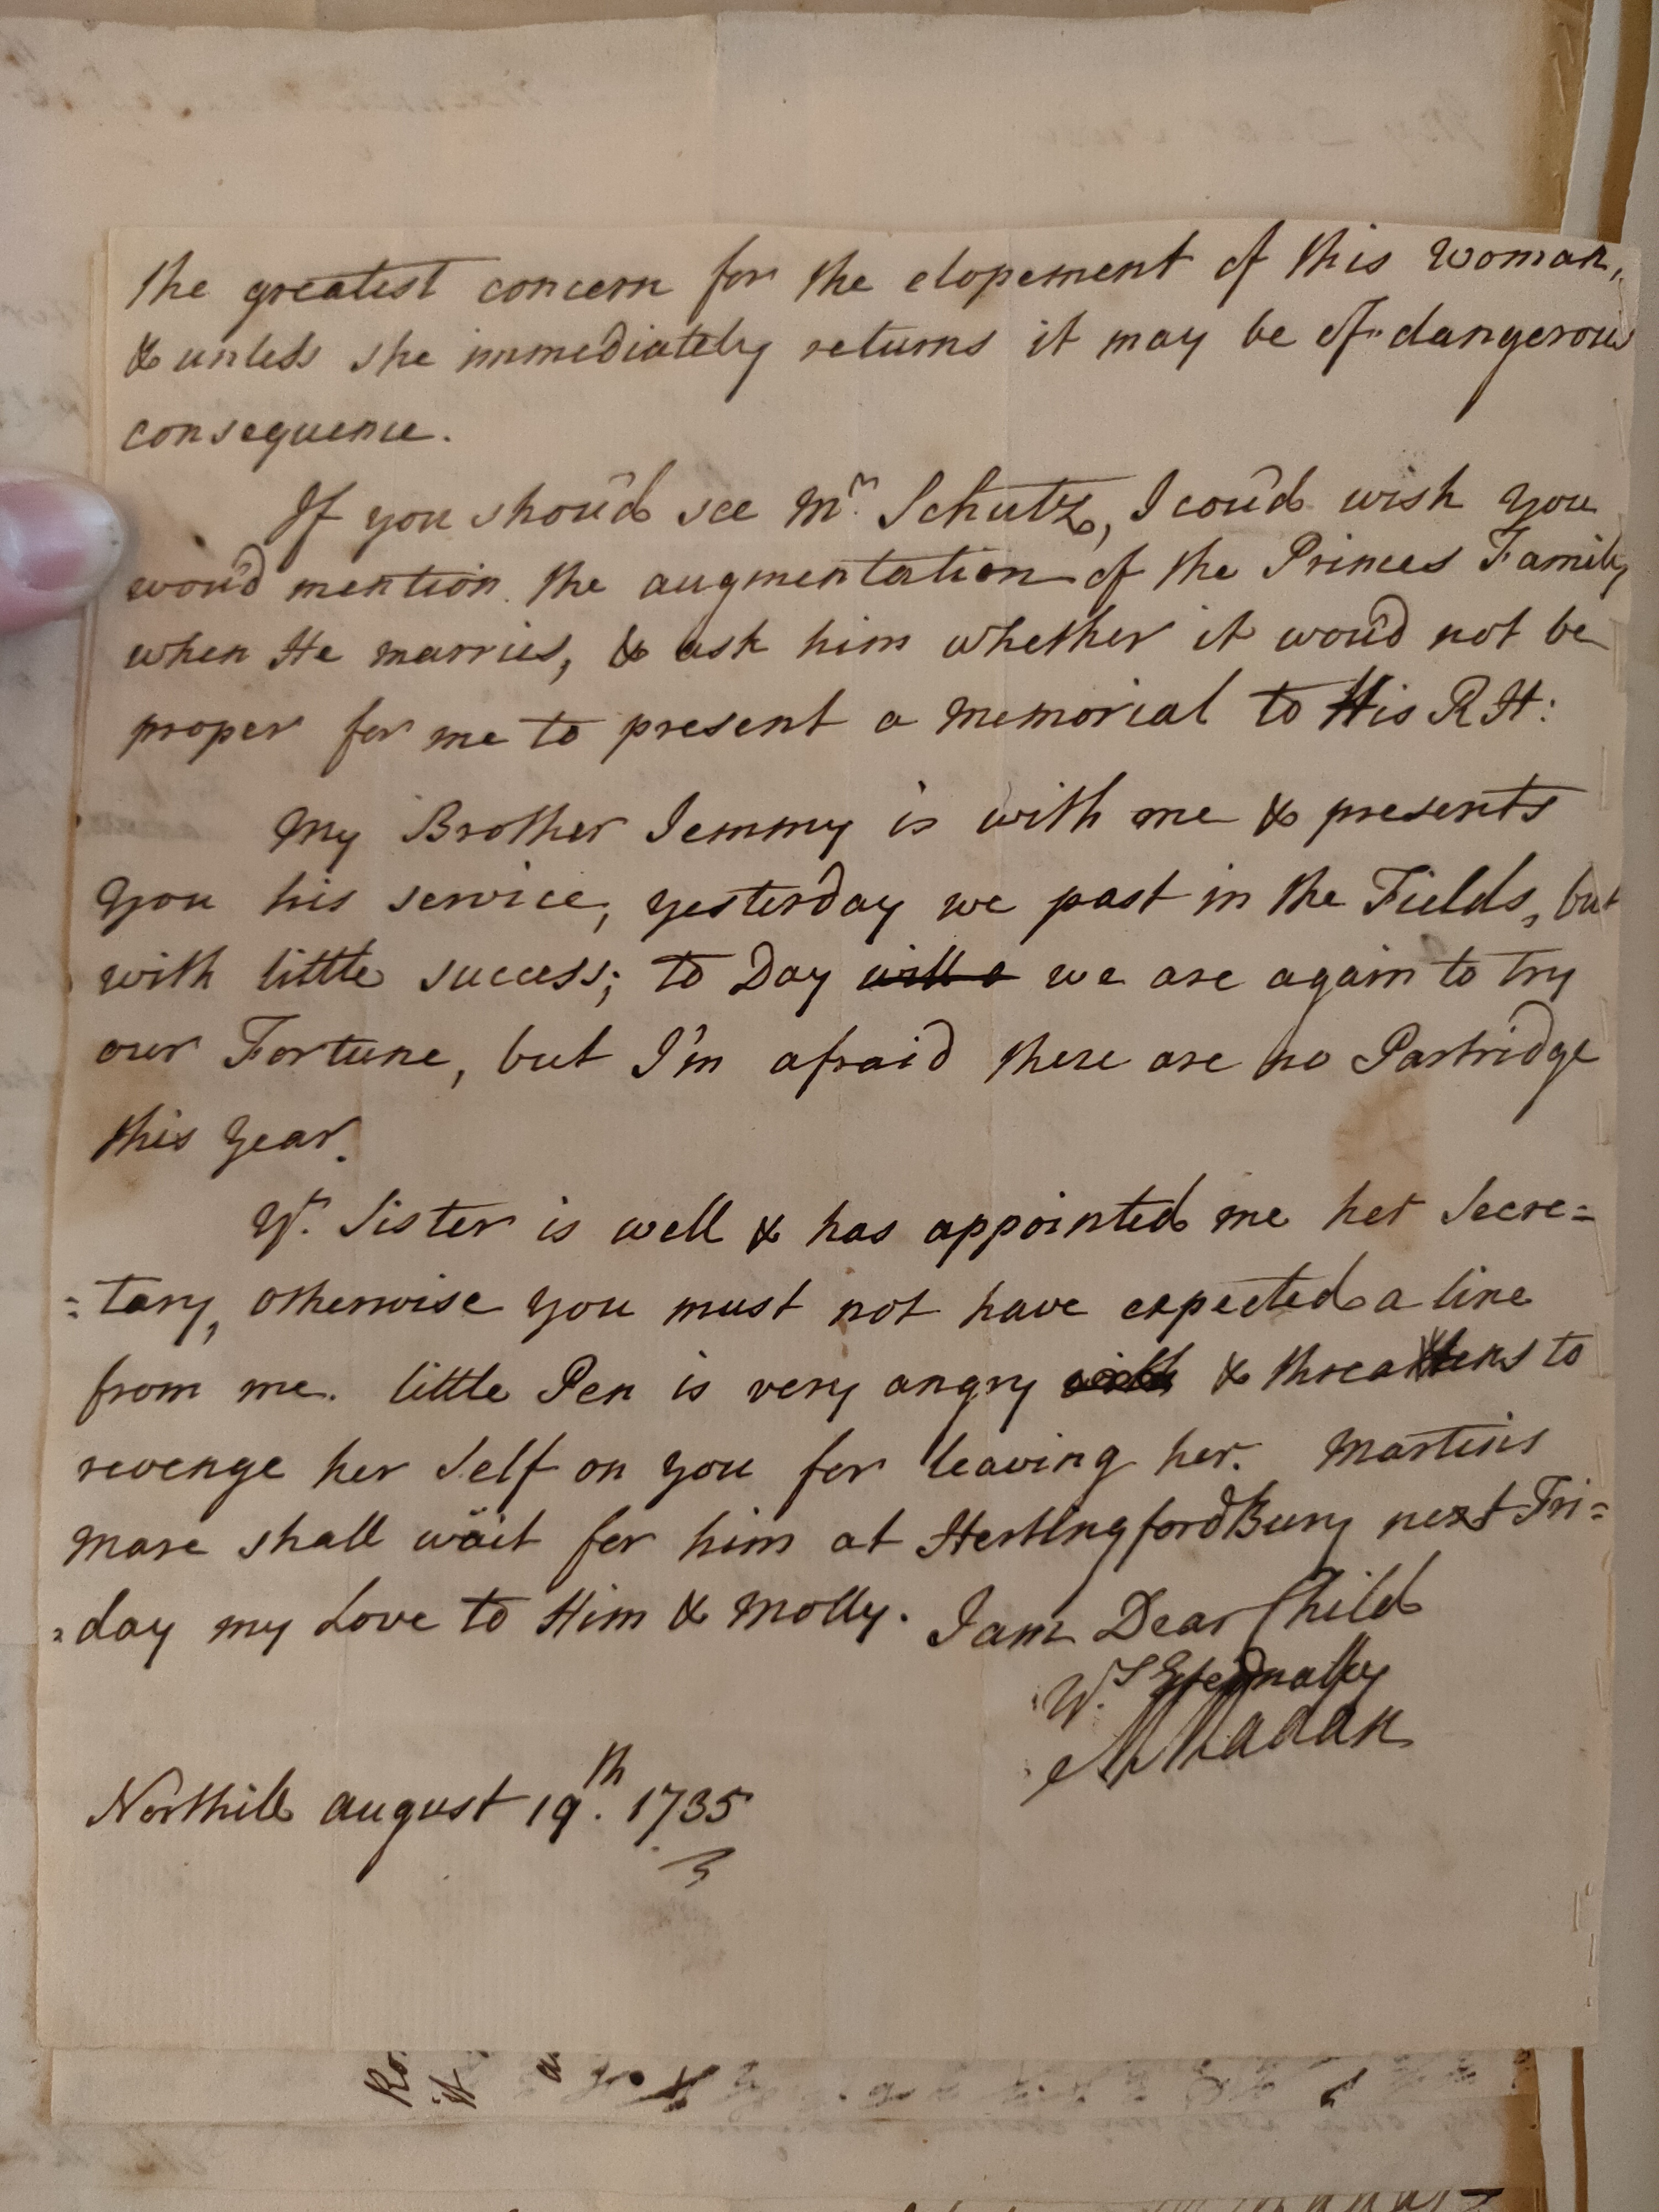 the greatest concern for the elopement of this woman,
& unless she immediately returns it may be of dangerous
consequence.
If you shou'd see Mr. Schutz, I cou'd wish you
wou'd mention the augmentation of the Princes Family
when He marries, & ask him whether it wou'd not be
proper for me to present a Memorial to His R H:
My Brother Jemmy is with me & presents
you his service, yesterday we past in the Fields, but
with little success; to Day will e we are again to try
our Fortune, but I'm afraid there are no Partridge
this Year.
Yr. Sister is well & has appointed me her Secre=
=tary, otherwise you must not have expected a line
from me. little Pen is very angry with & threattens to
revenge her self on you for leaving her. Martins
Mare shall wait for him at HertingfordBury next Fri=
=day my Love to Him & Molly. I am Dear Child
Yrs Eternally
MMadan
Northill august 19th. 1735